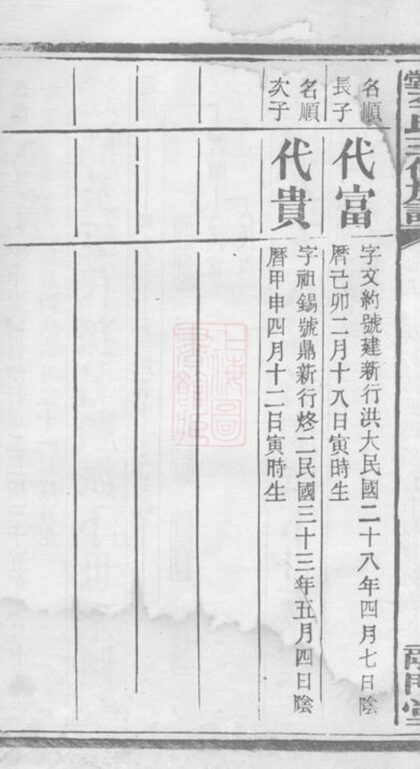 名順
長子
代富
字文約號建新行洪大民國二十八年四月七日陰
曆己卯二月十八日寅時生
名順
次子
代貴
字祖錫號鼎新行二民國三十三年五月四日陰
曆甲申四月十二日寅時生
上海圖
書館藏